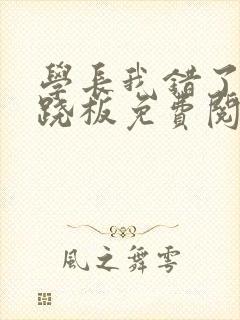 學長我錯了
跷板免費閱
風之舞雩